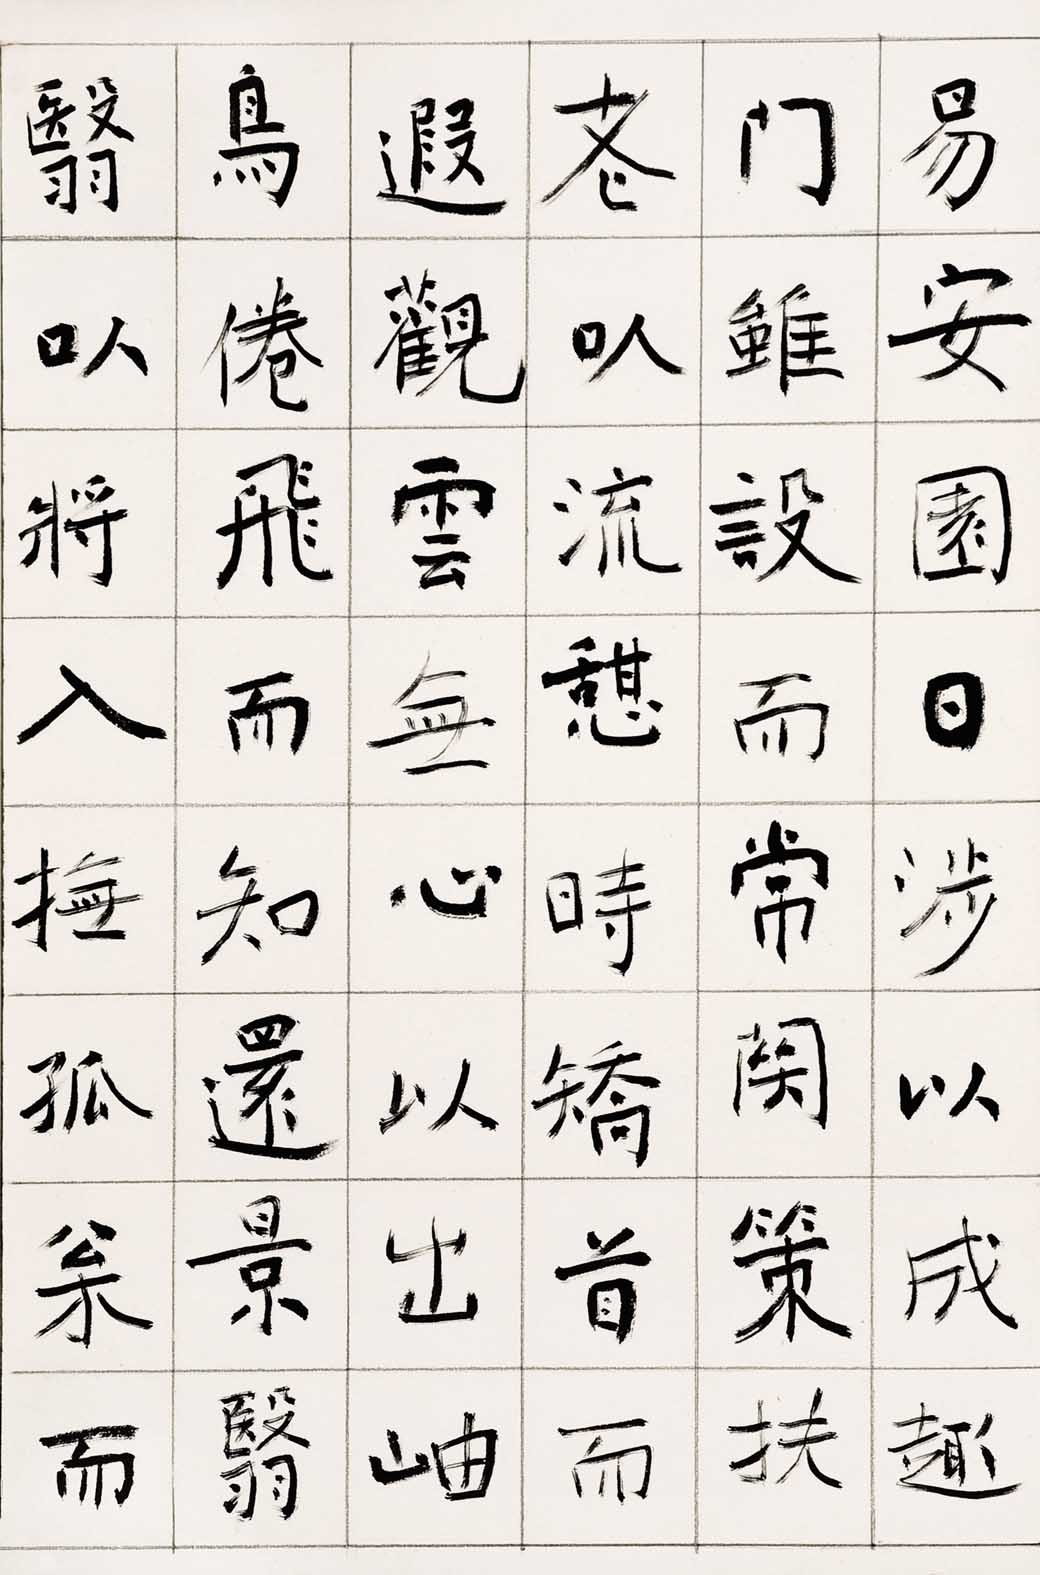 易安園日涉以成趣
门雖設而常関策扶
老㕥流憇時矯首而
遐觀雲無心以出岫
鳥倦飛而知還景翳
翳㕥將入撫孤枀而